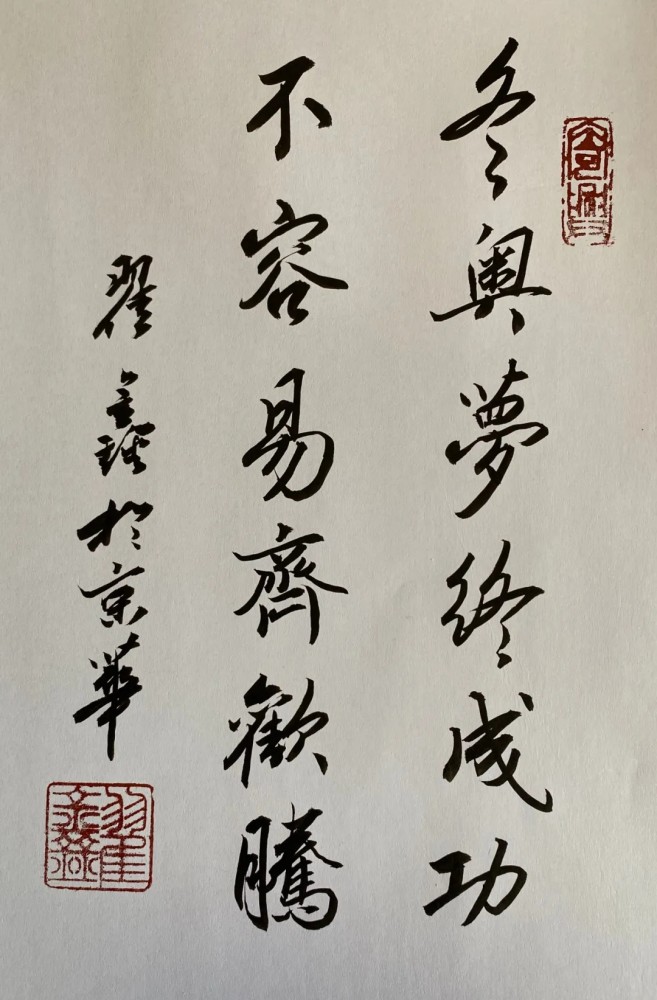 冬奧夢終成功
不容易齊歡騰
翟鑫於京華